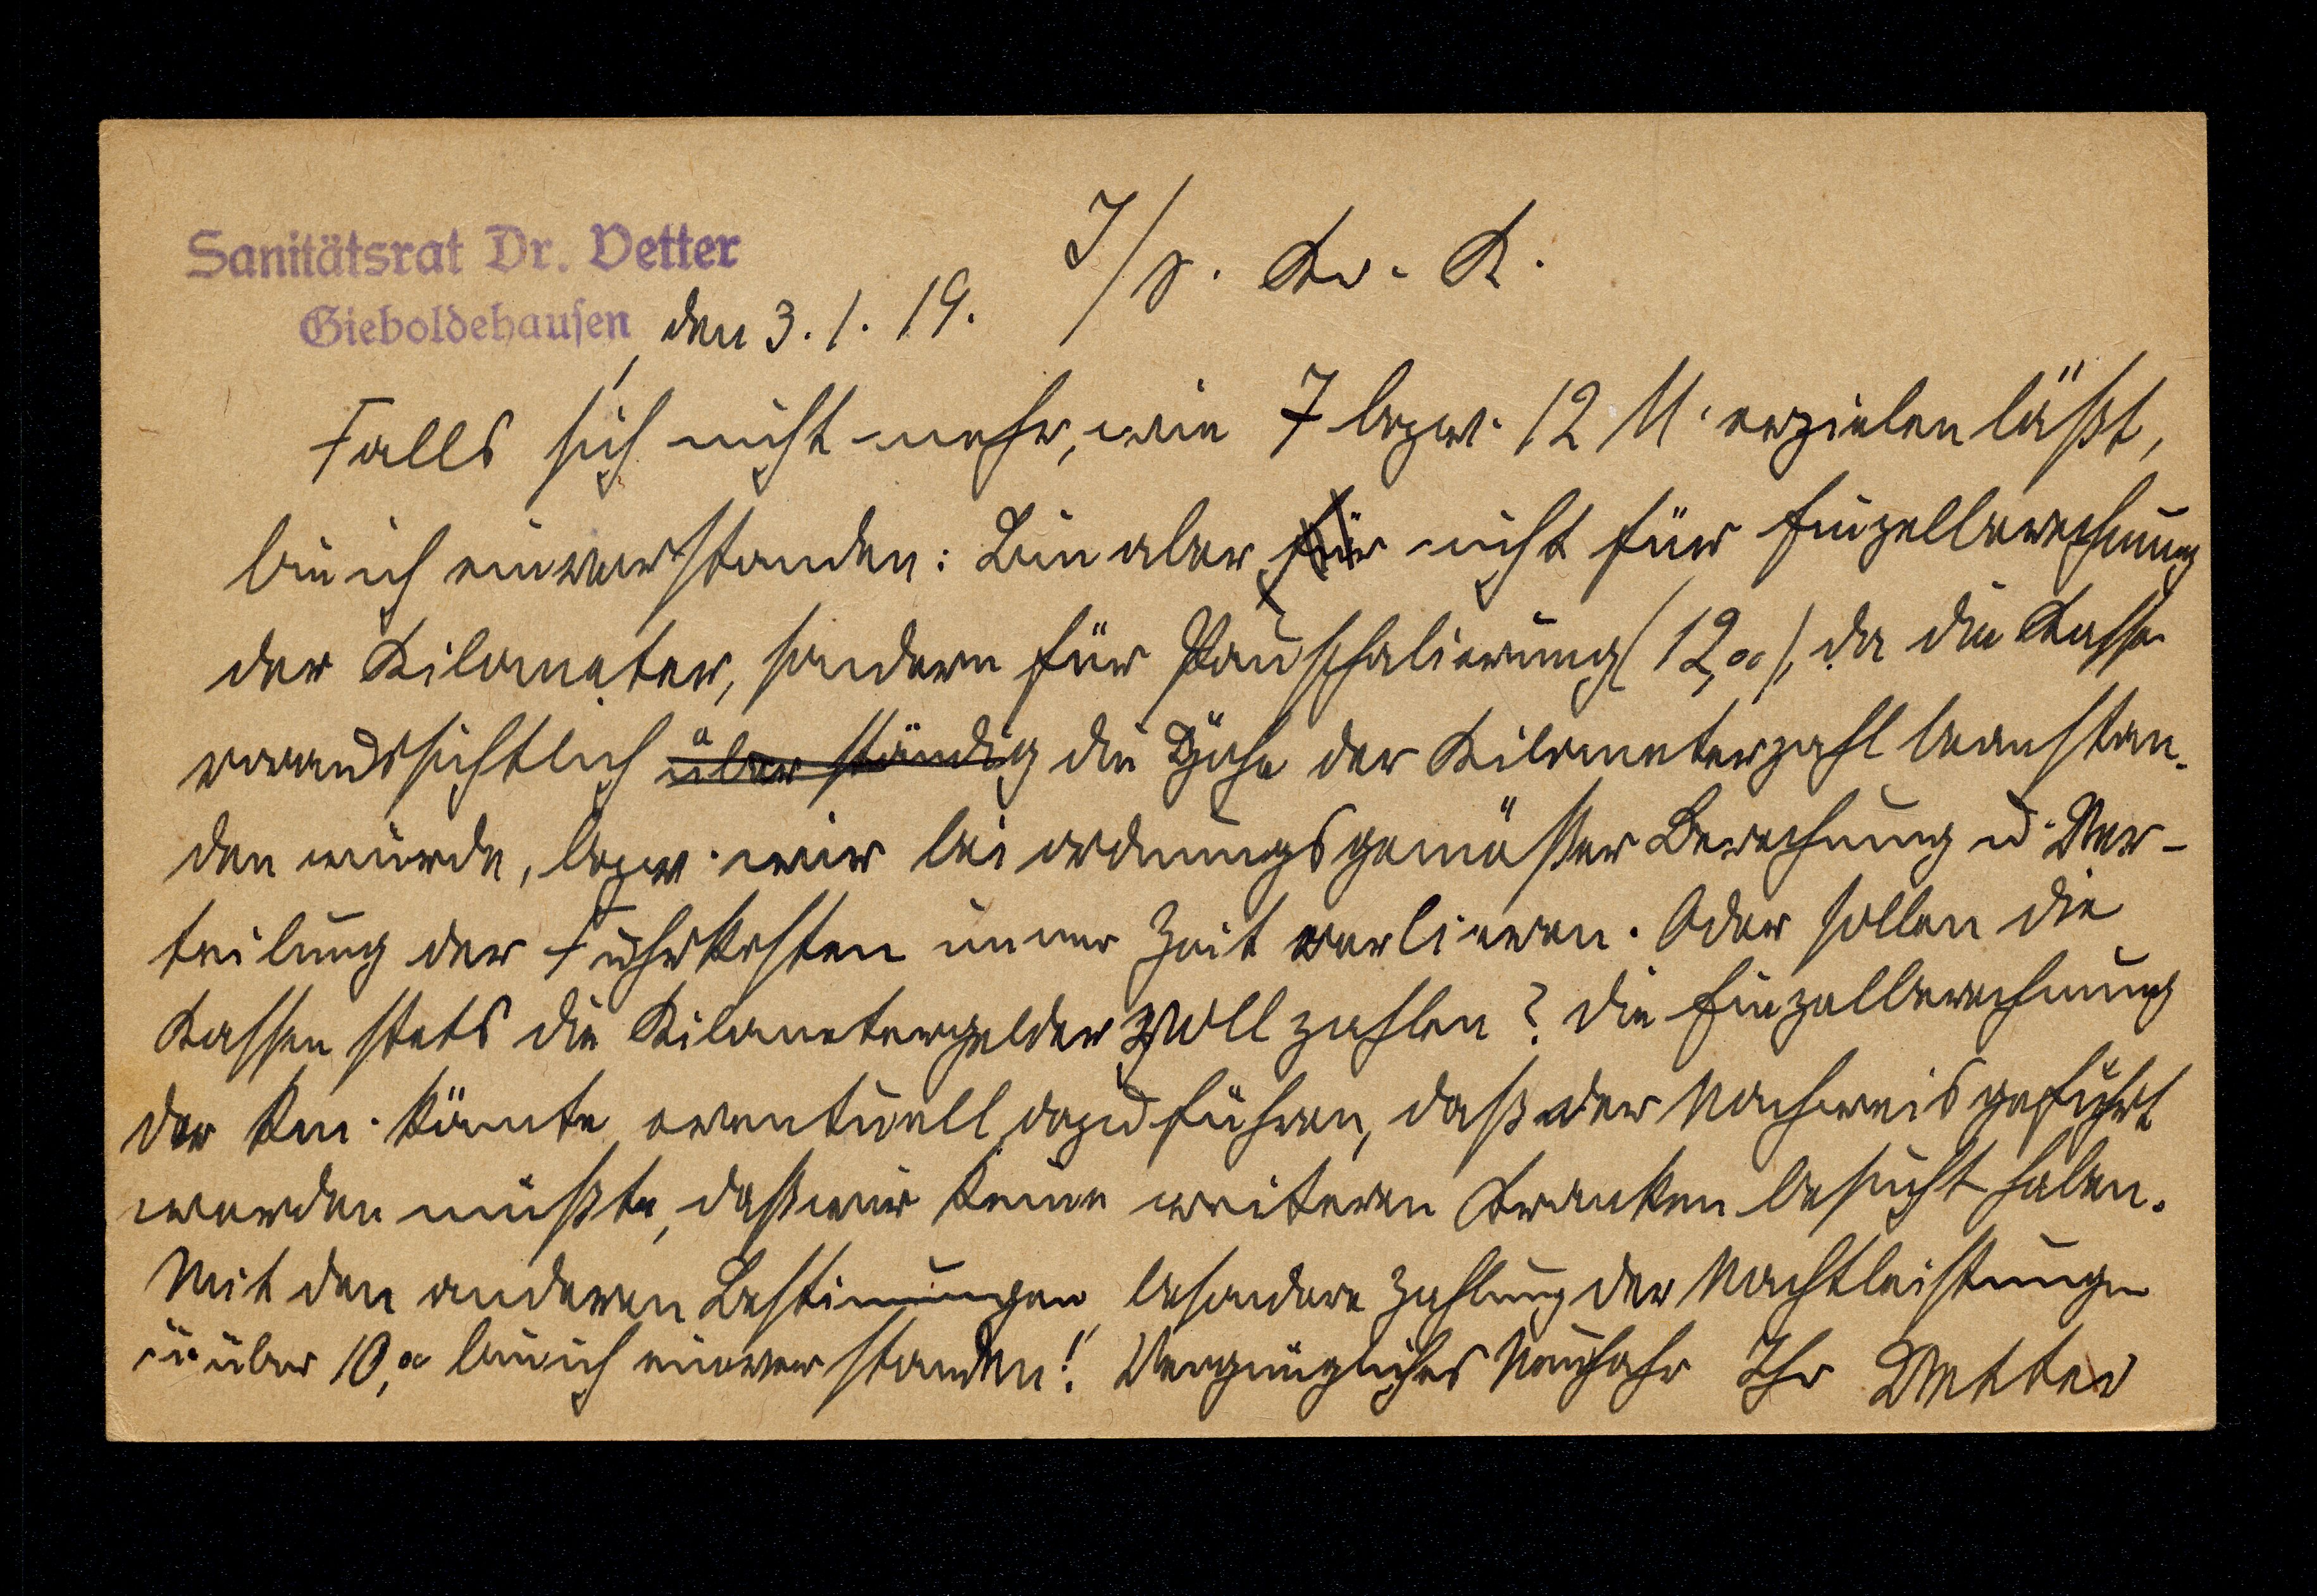 Sanitätsrat Dr. Vetter
Gieboldehausen, den 3.1.19.
S. Kr. K.
Falls sich nicht mehr, wie 7 bezw. 12 M. erzielen läßt,
bin ich einverstanden: Bin aber für nicht für Einzelberechnung
der Kilometer, sondern für Pauschalierung (12,00), da die Kasse
voraussichtlich über ständig die Höhe der Kilometerzahl beanstan-
den würde, bezw. wir bei ordnungsgemäßer Berechnung u. Ver-
teilung der Fuhrkosten immer Zeit verlieren. Oder sollen die
Kassen stets die Kilometergelder voll zahlen? Die Einzelberechnung
der Km. könnte eventuell dazu führen, daß der Nachweis geführt
werden müßte, daß wir keine weiteren Kranken besucht haben.
Mit den anderen Bestimmungen, besondere Zahlung der Nachtleistungen
über 10,00 bin ich einverstanden! Vergnügliches Neujahr Ihr Vetter